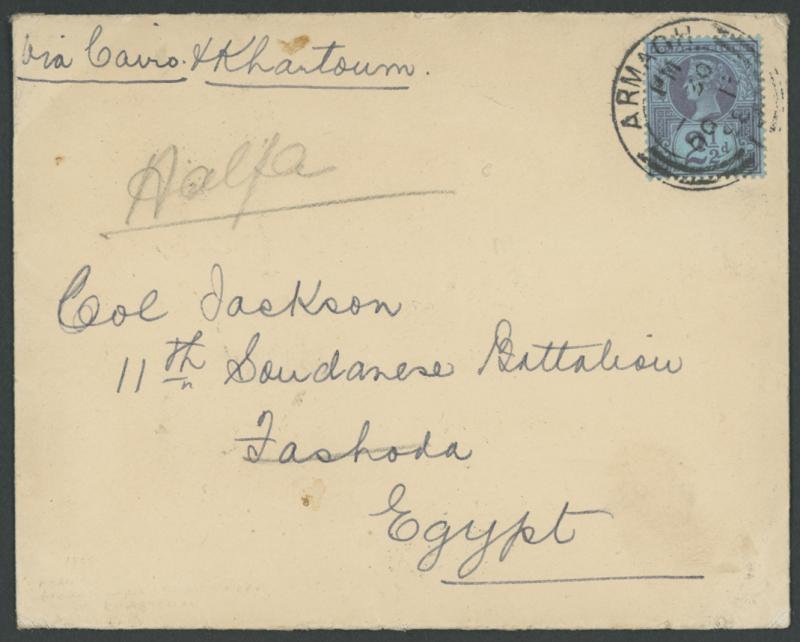 Via Cairo & Khartoum.
ARMAGH
2½d
Halfa
Col Jackson
11th Soudanese Battalion
Fashoda
Egypt